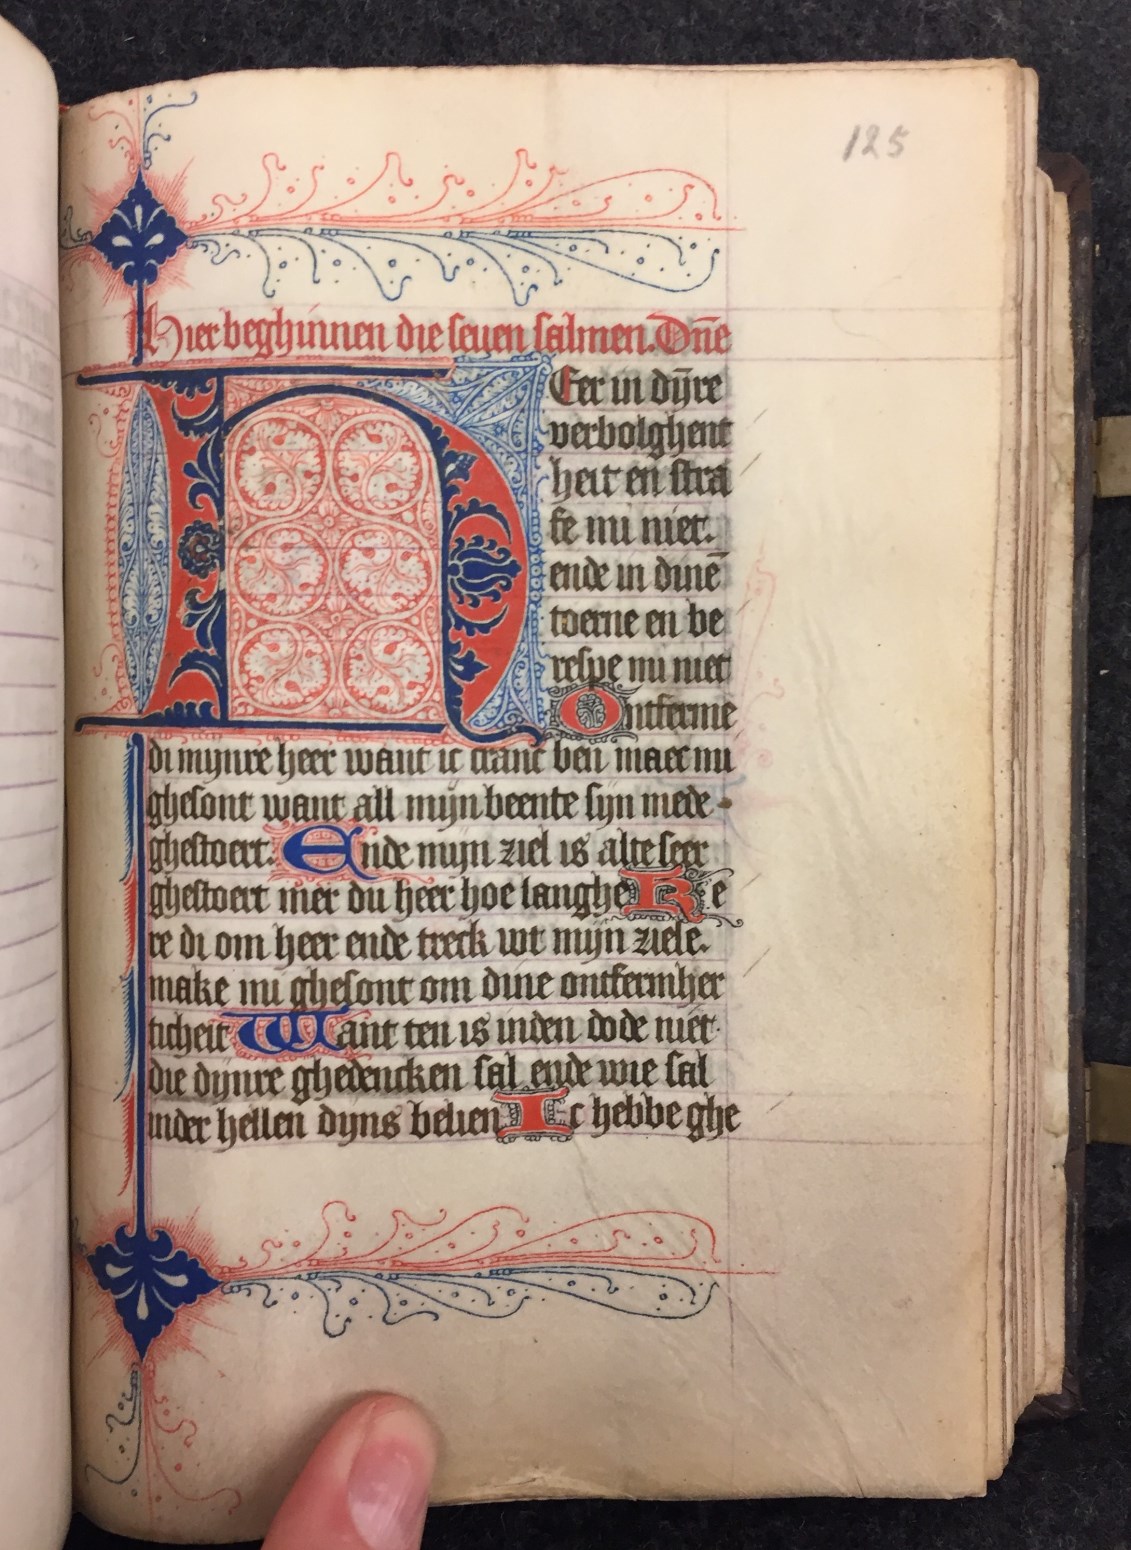 125
Hier beghinnen die seuen salmen. Dn̄e
HEer in dijnre
verbolghent
heit en stra
fe mi niet.
ende in dinē
toerne en be
respe mi niet
Ontferme
di mijnre heer want ic cranc ben maec mi
ghesont want all mijn beente sijn mede
ghestoert. Ende mijn ziel is alte seer
ghestoert mer du heer hoe langhe Ke
re di om heer ende treck wt mijn ziele.
make mi ghesont om dine ontfermher
ticheit Want ten is inden dode niet
die dijnre ghedencken sal ende wie sal
inder hellen dyns belien Ic hebbe ghe